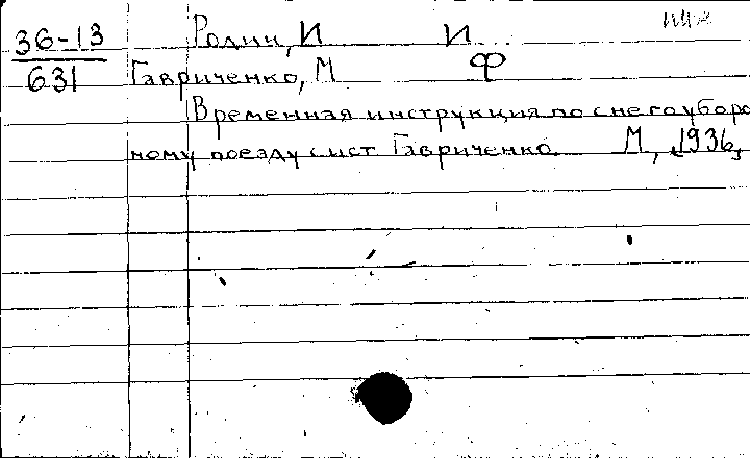 36-13
631
Родин, И И
Гавриченко, М. Ф
Временная инструкция по снегоуборо
ному поезду сист Гавриченко. М, 1936,